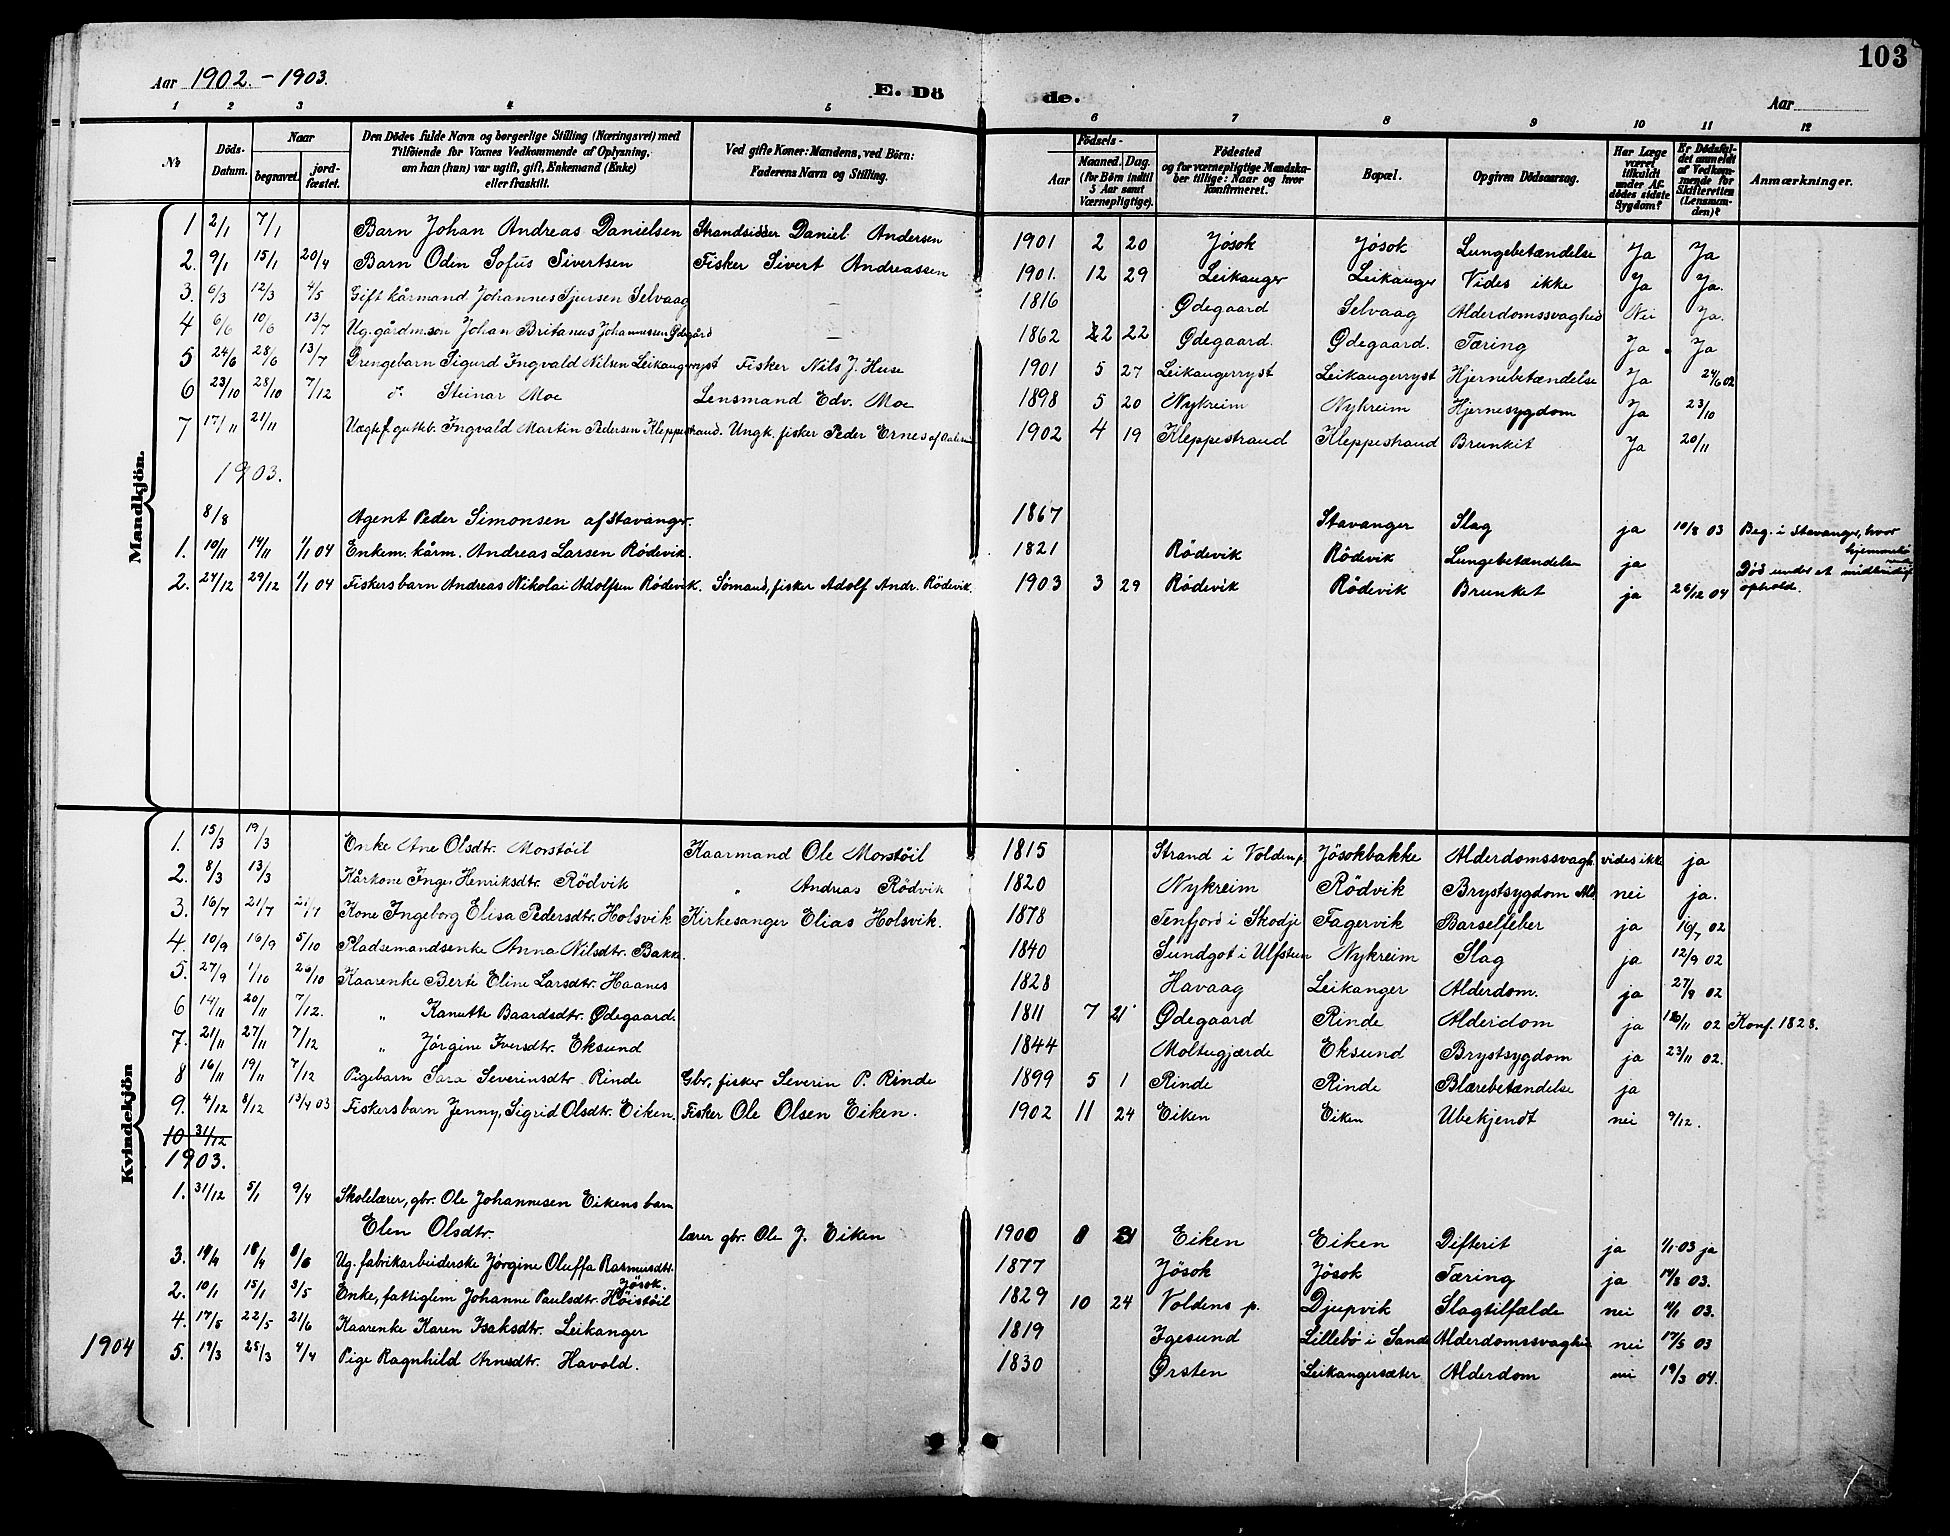 Aar 1902. - 1903.
E. Döde.
Aar
103
1 2 3 4 5 6 7 8 9 10 11 12
No
Döds-Datum.
Naar
begravet.
jord-fæstet.
Den Dödes fulde Navn og borgerlige Stilling (Næringsvei) med Tilföiende for Voxnes Vedkommende af Oplysning, om han (hun) var ugift, gift, Enkemand (Enke) eller fraskilt.
Ved gifte Koner: Mandens, ved Börn: Faderens Navn og Stilling.
Födsels-
Aar
Maaned. Dag. (for Börn indtil 5 Aar samt Værnepligtige).
Födested og for værnepligtige Mandskaber tillige: Naar og hvor konfirmeret.
Bopæl.
Opgiven Dödsaarsag.
Har Læge været tilkaldt under Afdödes sidste Sygdom?
Er Dödsfaldet anmeldt af Vedkommende for Skifteretten (Lensmanden)?
Anmærkninger.
Mandkjön.
1 2/1 7/1 Barn Johan Andreas Danielsen Strandsidder Daniel Andersen 1901 2 20 Jösok Jösok Lungebetændelse Ja Ja
2. 9/1 15/1 20/4 Barn Oden Sofus Sivertsen Fisker Sivert Andreassen 1901. 12 29 Leikanger Leikanger Vides ikke Ja Ja.
3. 6/3 12/3 4/5 Gift kårmand Johannes Sjursen Selvaag 1816 Ødegaard Selvaag Alderdomssvaghed Nei Ja.
4 6/6 10/6 13/7 Ug. gårdm.sön Johan Britanus Johannessen Ødegård 1862 22 Ødegaard. Ødegaard. Tæring Ja Ja
5 24/6 28/6 13/7 Drengebarn Sigurd Ingvald Nilsen Leikangerryst Fisker Nils J. Huse 1901 5 27 Leikangerryst Leikangerryst Hjernebetændelse Ja 24/6 02
6 23/10 28/10 7/12 do Steinar Moe Lensmand Edv. Moe 1898 5 20 Nykreim Nykreim Hjernesygdom Ja 23/10
7 17/11 21/11 Uægtef. gutteb. Ingvald Martin Pedersen Kleppestrand. Ungk. fisker Peder Ernes af 1902 4 19 Kleppestrand Kleppestrand Brunkit Ja 20/11
1903.
8/8 Agent Peder Simonsen af Stavanger. 1867 Stavanger Slag ja 10/8 03 Beg. i Stavanger, hvor
1. 10/11 14/11 1/1 04 Enkem. kårm. Andreas Larsen Rödevik. 1821 Rödevik Rödevik Lungebetændelse ja
2. 24/12 29/12 1/1 04 Fiskersbarn Andreas Nikolai Adolfsen Rödevik. Sömand, fisker Adolf Andr. Rödevik. 1903 3 29 Rödevik Rödevik Brunket ja 26/12 04 Död under et midlertidigt ophold.
Kvindekjön
1. 15/3 19/3 Enke Ane Olsdtr. Morstöil Kaarmand Ole Morstöil 1815 Strand i Volden p. Jösokbakke Alderdomssvagh. vides ikke ja
2. 8/3 13/3 Kårkone Inger Henriksdtr. Rödvik " Andreas Rödvik 1820 Nykreim Rödvik Brystsygdom nei ja.
3. 16/7 21/7 21/7 Kone Ingeborg Elisa Pedersdtr. Holsvik Kirkesanger Elias Holsvik. 1878 Tenfjord i Skodje Fagervik Barselfeber ja 16/7 02
4. 10/9 16/9 5/10 Pladsemandsenke Anna Nilsdtr. Bakke. 1840 Sundgot i Ulfsten Nykreim Slag ja 12/9 02
5. 27/9 1/10 26/10 Kaarenke Berte Eline Larsdtr. Haanes 1828 Havaag Leikanger Alderdom. ja 27/9 02
6 14/11 20/11 7/12. " Kanutte Baardsdtr. Ødegaard. 1811 7 21 Ødegaard Rinde Alderdom ja 18/11 02 Konf. 1828.
7. 21/11 27/11 7/12 " Jörgine Iversdtr. Eksund 1844 Moltugjærde Eksund Brystsygdom ja 23/11 02.
8 16/11 19/11 7/12 Pigebarn Sara Severinsdtr. Rinde Gbr, fisker Severin P. Rinde 1899 5 1 Rinde Rinde Blærebetændelse ja
9. 4/12 8/12 13/4 03 Fiskersbarn Jenny, Sigrid Olsdtr. Eiken. Fisker Ole Olsen Eiken. 1902 11 24 Eiken Eiken Ubekjendt nei 9/12.
10 31/12
1903.
1. 31/12 5/1 9/4 Skolelærer, gbr. Ole Johannesen Eikens barn
Elen Olsdtr. lærer gbr. Ole J. Eiken 1900 8 Eiken Eiken Difterit ja 1/1 03 ja
3. 18/4 8/6 Ug. fabrikarbeiderske Jörgine Oluffa Rasmusdtr. Jösok. 1877 Jösok Jösok Tæring ja 03.
2. 10/1 15/1 3/5 Enke, fattiglem Johanne Paulsdtr. Höistöil 1829 10 24 Voldens p. Djupvik Slagtilfælde nei 03.
4. 17/5 22/5 21/6 Kaarenke Karen Isaksdtr. Leikanger 1819 Igesund Lillebö i Sande Alderdomssvaghed nei 17/5 03
1904 5. 19/3 25/3 4/4 Pige Ragnhild Arnesdtr. Havold. 1830 Ørsten Leikangersæter Alderdom nei 19/3 04.